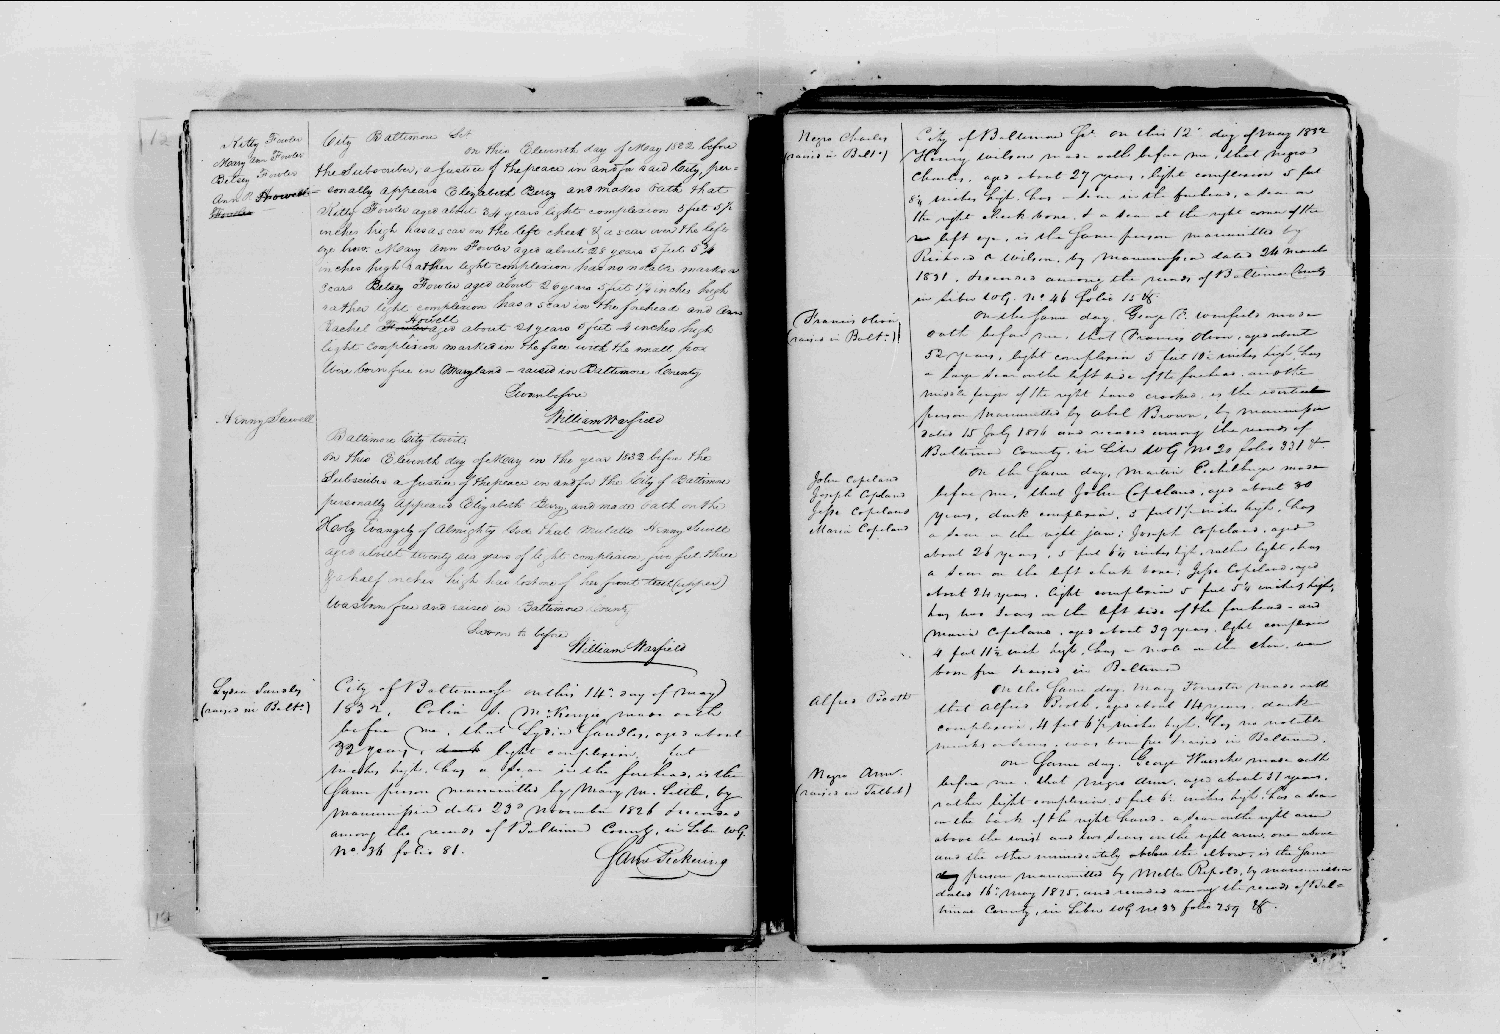 Kitty Fowler
Mary Ann Fowler
Betsey Fowler
Ann R. Howell
Fowler
City Baltimore Sct
on this Eleventh day of May 1832 before
the subscriber, a Justice of the peace in and for said City, per-
sonally appears Elizabeth Berry and makes oath that
Kitty Fowler aged about 34 years light complexion 5 feet 5½
inches high has a scar on the left cheek & a scar over the left
eye brow. Mary Ann Fowler aged about 28 years 5 feet 5¾
inches high rather light complexion has no notable marks or
scars Betsey Fowler aged about 26 years 5 feet 1½ inches high
rather light complexion has a scar in the forehead and Ann
Rachel Fowler Howell aged about 21 years 5 feet 4 inches high
light complexion marked in the face with the small pox
Were born free in Maryland – raised in Baltimore County
Sworn before
William Warfield
Henny Sewell
Baltimore City towit:
On this Eleventh day of May in the year 1832 before the
Subscriber a Justice of the peace in and for the City of Baltimore
personally appeared Elizabeth Berry, and made oath on the
Holy Evangely of Almighty God that Mulatto Henny Sewell
aged about twenty six years of light complexion, five feet three
& a half inches high has lost one of her front teeth (upper)
Was born free and raised in Baltimore County
Sworn to before
William Warfield
Lydia Sandles
(raised in Balto)
City of Baltimore Sc on this 14th day of May
1832, Colin S. McKenzie made oath
before me, that Lydia Sandles, aged about
32 years, dark light complexion, feet
inches high, has a scar in the forehead, is the
same person manumitted by Mary M. Little, by
manumission dated 23d November 1826 & recorded
among the records of Baltimore County, in Liber WG.
No. 36 folio 81.
Sam Pickering
Negro Charles
(raised in Balto)
City of Baltimore Sct on this 12th day of May 1832
Henry Wilson made oath before me, that negro
Charles, aged about 27 years, light complexion 5 feet
8¼ inches high, has a scar in the forehead, a scar on
the right cheek bone, & a scar at the right corner of the
left eye, is the same person manumitted by
Richard Wilson, by manumission dated 24 March
1831. & recorded among the records of Baltimore County
in Liber WG. No 46 folio 15 &c.
Francis Oliver
(raised in Balto)
On the same day, George F. Warfield made
oath before me, that Francis Oliver, aged about
52 years, light complexion 5 feet 10½ inches high, has
a large scar on the left side of the forehead, and the
middle finger of the right hand crooked, is the identical
person manumitted by Abel Brown, by manumission
dated 15 July 1814 and recorded among the records of
Baltimore County, in Liber WG No 20 folio 331 &c.
John Copeland
Joseph Copeland
Jesse Copeland
Maria Copeland
On the same day, Martin Eichelberger made
before me, that John Copeland, aged about 30
years, dark complexion, 5 feet inches high, has
a scar on the right jaw; Joseph Copeland, aged
about 26 years, 5 feet 6¼ inches high, rather light, has
a scar on the left cheek bone; Jesse Copeland, aged
about 24 years, light complexion 5 feet 5¼ inches high,
has two scars on the left side of the forehead – and
Maria Copeland, aged about 39 years, light complexion
4 feet 11½ inch high, has a mole on the chin, were
born free & raised in Baltimore
Alfred Booth
On the same day, Mary Forrester made oath
that Alfred Booth, aged about 14 years, dark
complexion, 4 feet 6½ inches high, has no notable
marks or scars, was born free & raised in Baltimore.
Negro Ann.
(raised in Talbot)
On same day, George Waesche made oath
before me, that Negro Ann, aged about 31 years,
rather light complexion 5 feet 6 inches high, has a scar
on the back of the right hand, a scar on the right arm
above the wrist and two scars on the right arm, one above
and the other immediately below the elbow, is the same
person manumitted by Metta Repold, by manumission
dated 16th May 1825, and recorded among the records of Bal-
timore County, in Liber WG No 33 folio 259 &c.